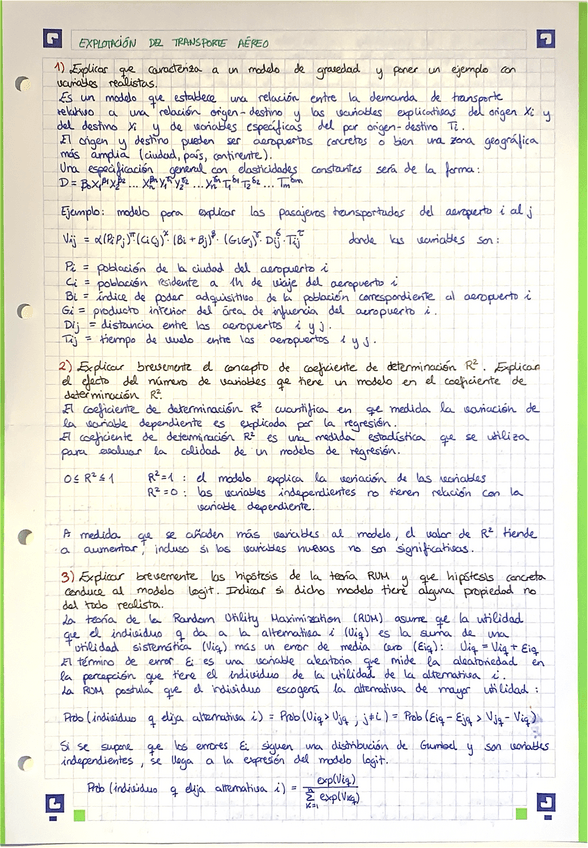 EXPLOTACIÓN DEL TRANSPORTE AÉREO
1) Explicar que caracteriza a un modelo de gravedad y poner un ejemplo con
variables realistas.
Es un modelo que establece una relación entre la demanda de transporte
relativo a una relación origen-destino y las variables explicativas del origen Xi y
del destino Xj y de variables específicas del par origen-destino Ti.
El origen y destino pueden ser aeropuertos concretos o bien una zona geográfica
más amplia (ciudad, país, continente).
Una especificación general con elasticidades constantes será de la forma:
Ejemplo: modelo para explicar los pasajeros transportados del aeropuerto i al j
Vij = α(PiPj)^π (CiCj)^γ · (Bi + Bj)^β · (GiGj)^σ · Dij^δ · Tij^τ donde las variables son:
Pi = población de la ciudad del aeropuerto i
Ci = población residente a 1h de viaje del aeropuerto i
Bi = índice de poder adquisitivo de la población correspondiente al aeropuerto i
Gi = producto interior del área de influencia del aeropuerto i.
Dij = distancia entre los aeropuertos i y j.
Tij = tiempo de vuelo entre los aeropuertos i y j.
2) Explicar brevemente el concepto de coeficiente de determinación R². Explicar
el efecto del número de variables qe tiene un modelo en el coeficiente de
determinación R².
El coeficiente de determinación R² cuantifica en qe medida la variación de
la variable dependiente es explicada por la regresión.
El coeficiente de determinación R² es una medida estadística que se utiliza
para evaluar la calidad de un modelo de regresión.
0 ≤ R² ≤ 1 R²=1 : el modelo explica la variación de las variables
R²=0 : las variables independientes no tienen relación con la
variable dependiente.
A medida qe se añaden más variables al modelo, el valor de R² tiende
a aumentar, incluso si las variables nuevas no son significativas.
3) Explicar brevemente las hipótesis de la teoría RUM y que hipótesis concreta
conduce al modelo logit. Indicar si dicho modelo tiene alguna propiedad no
del todo realista.
La teoría de la Random Utility Maximization (RUM) asume que la utilidad
que el individuo q da a la alternativa i (Uiq) es la suma de una
utilidad sistemática (Viq) más un error de media cero (εiq): Uiq = Viq + εiq
El término de error εi es una variable aleatoria que mide la aleatoriedad en
la percepción que tiene el individuo de la utilidad de la alternativa i.
La RUM postula que el individuo escogerá la alternativa de mayor utilidad :
Prob (individuo q elija alternativa i) = Prob (Uiq > Ujq , j≠i) = Prob (εiq - εjq > Vjq - Viq)
Si se supone que los errores εi siguen una distribución de Gumbel y son variables
independientes, se llega a la expresión del modelo logit.
Prob (individuo q elija alternativa i) = exp(Viq) / Σ exp(Vkq)